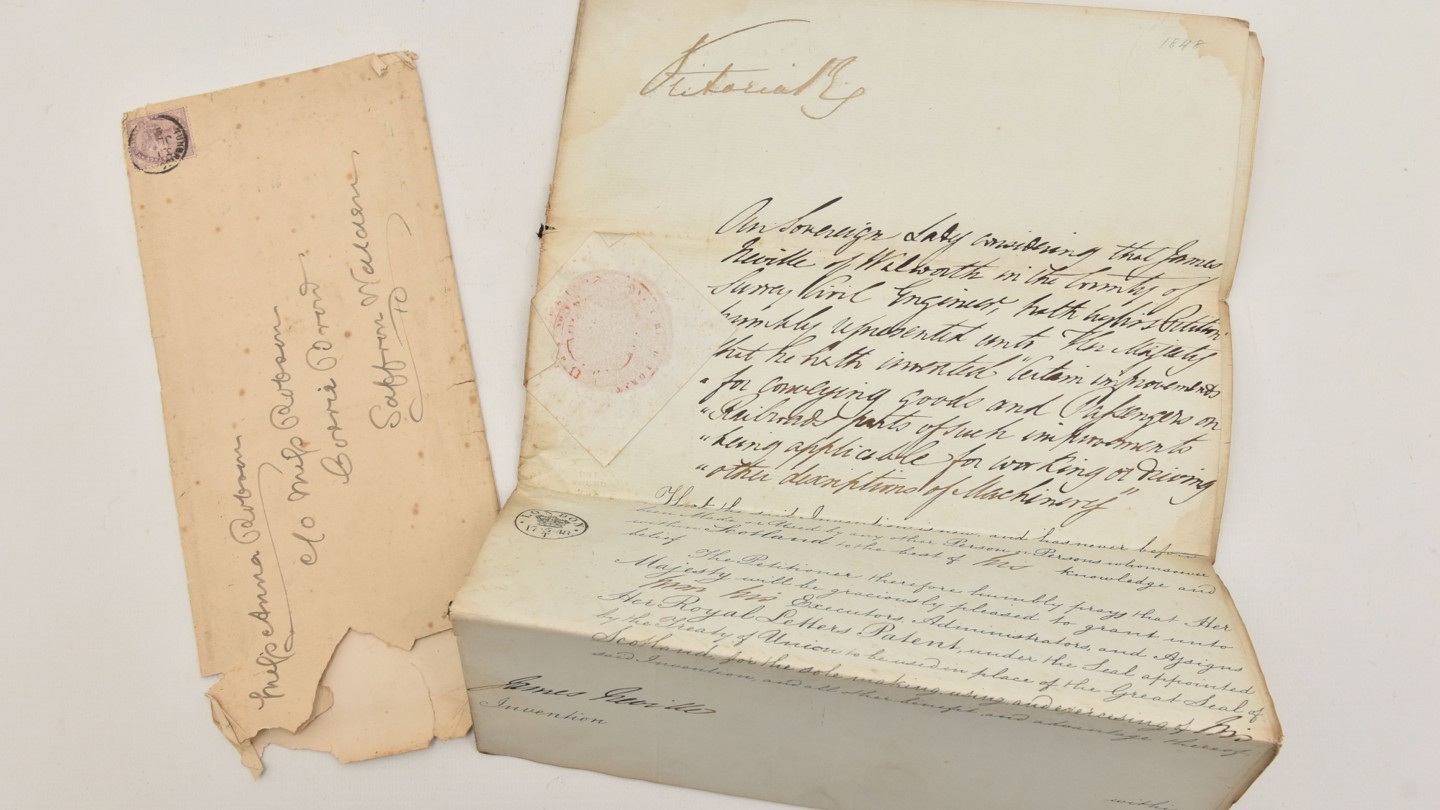 Miss Anna Robson
c/o Miss Robson
Corrie Road
Saffron Walden
1848
Victoria R
Our Sovereign Lady considering that James
Neville of Walworth in the County of
Surrey Civil Engineer, hath by his Petition
humbly represented unto Her Majesty
that he hath invented "Certain improvements
"for conveying goods and Passengers on
"Railroads parts of such improvements
"being applicable for working or driving
"other descriptions of Machinery"
That the said Invention is new and has never before
been Made or Used by any other Person or Persons whomsoever
within Scotland to the best of his knowledge and
belief
The Petitioner therefore humbly prays that Her
Majesty will be graciously pleased to grant unto
him his Executors, Administrators, and Assigns
Her Royal Letters Patent under the Seal appointed
by the Treaty of Union to be used in place of the Great Seal of
Scotland, for the sole making using and exercising of his
said Invention, and all other benefit and advantage thereof
LONDON
James Neville
Invention
within